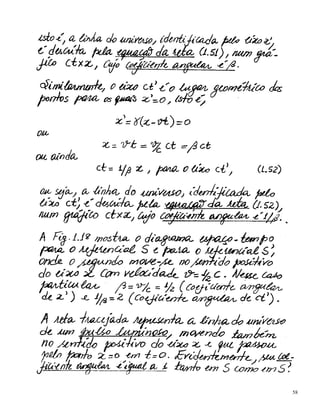 isto é, a linha do universo, identificada pelo eixo x',
é descrita pela equação da reta (1.51), num grá-
fico ct×x, cujo coeficiente angular é β.
Similarmente, o eixo ct' é o lugar geométrico dos
pontos para os quais x'=0, isto é,
x' = γ(x-vt) = 0
ou
x = vt = v/c ct = β ct
ou ainda
ct = 1/β x , para o eixo ct', (1.52)
ou seja, a linha, do universo, identificada pelo
eixo ct', é descrita, pela equação da reta (1.52),
num gráfico ct×x, cujo coeficiente angular é 1/β.
A Fig. 1.18 mostra o diagrama espaço-tempo
para o referencial S e para o referencial S',
onde o segundo move-se no sentido positivo
do eixo x com velocidade v = 1/2 c. Nesse caso
particular β = v/c = 1/2 (coeficiente angular
de x') e 1/β = 2 (coeficiente angular de ct').
A reta tracejada representa a linha do universo
de um pulso luminoso, movendo também
no sentido positivo do eixo x e que passou
pelo ponto x=0 em t=0. Evidentemente, seu coe-
ficiente angular é igual a 1 tanto em S como em S'.
58